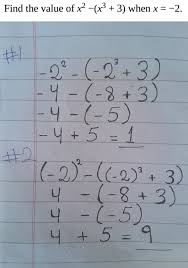 Find the value of x² –(x³ + 3) when x = –2.
#1
-2² - (-2³ + 3)
-4 - (-8 + 3)
-4 - (-5)
-4 + 5 = 1
#2
(-2)² - ((-2)³ + 3)
4 - (-8 + 3)
4 - (-5)
4 + 5 = 9